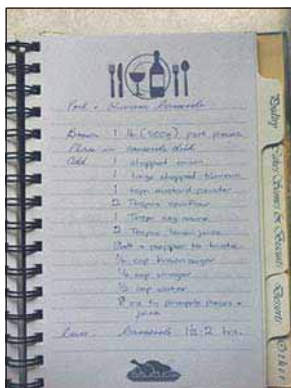 Pork + Banana Casserole
Brown 1 lb (500g) pork pieces
Place in casserole dish
Add 1 chopped onion
1 large chopped
1 tspn mustard powder
2 Tbspns cornflour
1 Tbspn soy sauce
2 Tbspns lemon juice
Salt + pepper to taste
cup brown sugar
¼ cup vinegar
½ cup water
8 oz tin pineapple pieces + juice
Cover. Casserole 1½-2 hrs.
Poultry
Cakes Slices & Biscuits
Desserts
Other